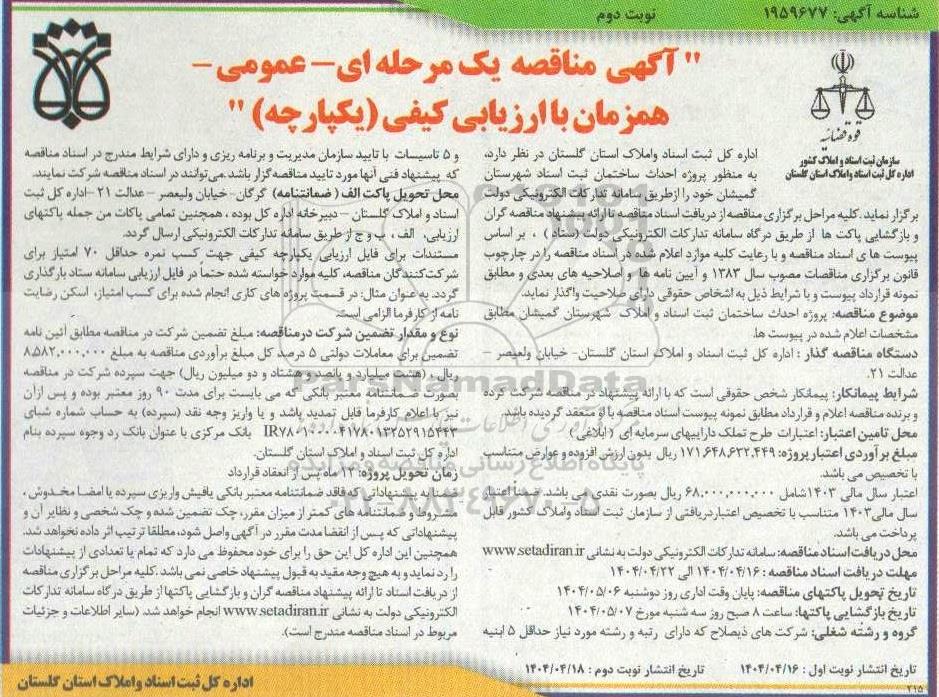 شناسه آگهی: ۱۹۵۹۶۷۷
نوبت دوم
" آگهی مناقصه یک مرحله ای– عمومی –
همزمان با ارزیابی کیفی (یکپارچه) "
قوه قضائیه
سازمان ثبت اسناد و املاک کشور
اداره کل ثبت اسناد واملاک استان گلستان
اداره کل ثبت اسناد واملاک استان گلستان در نظر دارد،
به منظور پروژه احداث ساختمان ثبت اسناد شهرستان
گمیشان خود را ازطریق سامانه تدارکات الکترونیکی دولت
برگزار نماید. کلیه مراحل برگزاری مناقصه از دریافت اسناد مناقصه تا ارائه پیشنهاد مناقصه گران
و بازگشایی پاکت ها از طریق درگاه سامانه تدارکات الکترونیکی دولت (ستاد) ، بر اساس
پیوست ها ی اسناد مناقصه و با رعایت کلیه موارد اعلام شده در اسناد مناقصه را در چارچوب
قانون برگزاری مناقصات مصوب سال ۱۳۸۳ و آیین نامه ها و اصلاحیه های بعدی و مطابق
نمونه قرارداد پیوست و با شرایط ذیل به اشخاص حقوقی دارای صلاحیت واگذار نماید.
موضوع مناقصه: پروژه احداث ساختمان ثبت اسناد و املاک شهرستان گمیشان مطابق
مشخصات اعلام شده در پیوست ها.
دستگاه مناقصه گذار : اداره کل ثبت اسناد و املاک استان گلستان- خیابان ولیعصر –
عدالت ۲۱.
شرایط پیمانکار: پیمانکار شخص حقوقی است که با ارائه پیشنهاد در مناقصه شرکت کرده
و برنده مناقصه اعلام و قرارداد مطابق نمونه پیوست اسناد مناقصه با او منعقد گردیده باشد.
محل تامین اعتبار: اعتبارات طرح تملک داراییهای سرمایه ای ( ابلاغی )
مبلغ برآوردی اعتبار پروژه: ۱۷۱,۶۴۸,۶۳۲,۴۴۹ ریال بدون ارزش افزوده و عوارض متناسب
با تخصیص می باشد.
اعتبار سال مالی ۱۴۰۳شامل ۶۸,۰۰۰,۰۰۰,۰۰۰ ریال بصورت نقدی می باشد. اعتبار
سال مالی۱۴۰۳ متناسب با تخصیص اعتباردریافتی از سازمان ثبت اسناد واملاک کشور قابل
پرداخت می باشد.
محل دریافت اسناد مناقصه: سامانه تدارکات الکترونیکی دولت به نشانی www.setadiran.ir
مهلت دریافت اسناد مناقصه : ۱۴۰۴/۰۴/۱۶ الی ۱۴۰۴/۰۴/۲۲
تاریخ تحویل پاکتهای مناقصه: پایان وقت اداری روز دوشنبه ۱۴۰۴/۰۵/۰۶
تاریخ بازگشایی پاکتها: ساعت ۸ صبح روز سه شنبه مورخ ۱۴۰۴/۰۵/۰۷
گروه و رشته شغلی: شرکت های ذیصلاح که دارای رتبه و رشته مورد نیاز حداقل ۵ ابنیه
و ۵ تاسیسات با تایید سازمان مدیریت و برنامه ریزی و دارای شرایط مندرج در اسناد مناقصه
که پیشنهاد فنی آنها مورد تایید مناقصه گزار باشد.می توانند در اسناد مناقصه شرکت نمایند.
محل تحویل پاکت الف ( ضمانتنامه) گرگان- خیابان ولیعصر – عدالت ۲۱ – اداره کل ثبت
اسناد و املاک گلستان – دبیرخانه اداره کل بوده ، همچنین تمامی پاکات من جمله پاکتهای
ارزیابی، الف ، ب و ج از طریق سامانه تدارکات الکترونیکی ارسال گردد.
مستندات برای فایل ارزیابی یکپارچه کیفی جهت کسب نمره حداقل ۷۰ امتیاز برای
شرکت کنندگان مناقصه، کلیه موارد خواسته شده حتماً در فایل ارزیابی سامانه ستاد بارگذاری
گردد. به عنوان مثال: در قسمت پروژه های کاری انجام شده برای کسب امتیاز، اسکن رضایت
نامه از کارفرما الزامی است.
نوع و مقدار تضمین شرکت در مناقصه: مبلغ تضمین شرکت در مناقصه مطابق آئین نامه
تضمین برای معاملات دولتی ۵ درصد کل مبلغ برآوردی مناقصه به مبلغ ۸,۵۸۲,۰۰۰,۰۰۰
ریال، (هشت میلیارد و پانصد و هشتاد و دو میلیون ریال) جهت سپرده شرکت در مناقصه
بصورت ضمانتنامه معتبر بانکی که می بایست برای مدت ۹۰ روز معتبر بوده و پس ازآن
نیز با اعلام کارفرما قابل تمدید باشد و یا واریز وجه نقد (سپرده) به حساب شماره شبای
بانک مرکزی با عنوان بانک رد وجوه سپرده بنام
اداره کل ثبت اسناد و املاک استان گلستان.
زمان تحویل پروژه: ماه پس از انعقاد قرارداد
ضمناً به پیشنهاداتی که فاقد ضمانتنامه معتبر بانکی یافیش واریزی سپرده یا امضا مخدوش ،
مشروط و ضمانتنامه های کمتر از میزان مقرر، چک تضمین شده و چک شخصی و نظایر آن و
پیشنهاداتی که پس از انقضا مدت مقرر در آگهی واصل شود، مطلقا ترتیب اثر داده نخواهد شد.
همچنین این اداره کل این حق را برای خود محفوظ می دارد که تمام یا تعدادی از پیشنهادات
را رد نماید و به هیچ وجه مقید به قبول پیشنهاد خاصی نمی باشد .کلیه مراحل برگزاری مناقصه
از دریافت اسناد تا ارائه پیشنهاد مناقصه گران و بازگشایی پاکتها از طریق درگاه سامانه تدارکات
الکترونیکی دولت به نشانی www.setadiran.ir انجام خواهد شد. (سایر اطلاعات و جزئیات
مربوط در اسناد مناقصه مندرج است).
تاریخ انتشار نوبت اول : ۱۴۰۴/۰۴/۱۶ تاریخ انتشار نوبت دوم : ۱۴۰۴/۰۴/۱۸
اداره کل ثبت اسناد واملاک استان گلستان
۲۱۵
ParsNamadData